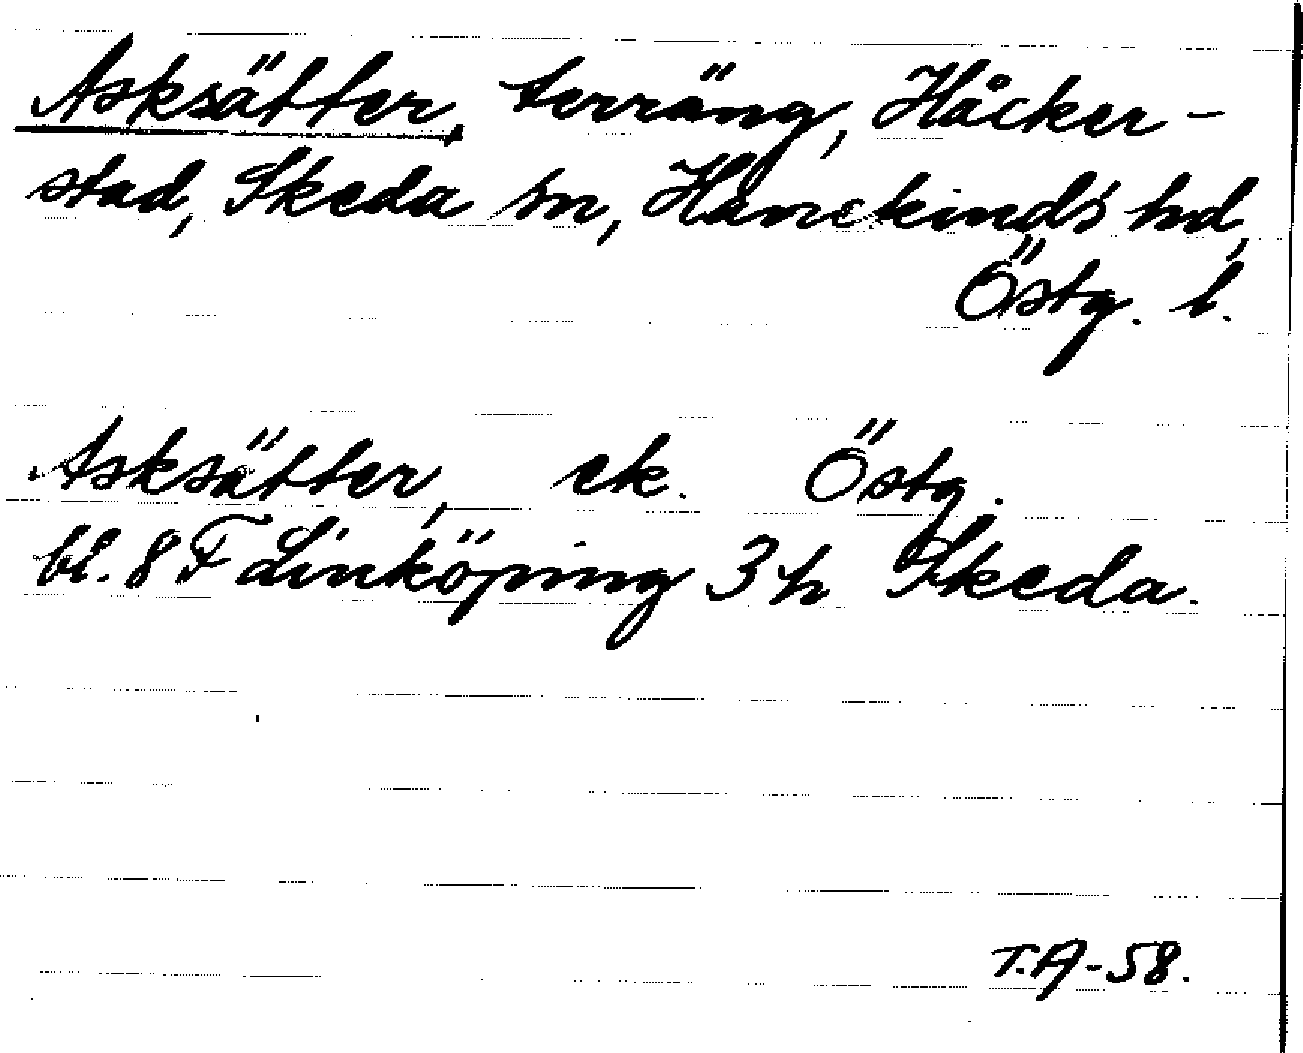 Asksätter, terräng, Håcker-
stad, Skeda sn, Hanekinds hd,
Östg. l.
Asksätter, ek. Östg.
bl. 8 F Linköping 3 h Skeda.
T.A-58.